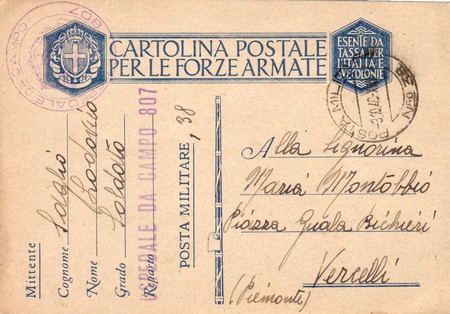 CARTOLINA POSTALE
PER LE FORZE ARMATE
ESENTE DA
TASSA PER
L'ITALIA E
SVE COLONIE
OSPEDALE DA CAMPO 807
POSTA MILITARE
Mittente
Cognome Saggio
Nome Lodovico
Grado Soldato
Reparto OSPEDALE DA CAMPO 807
POSTA MILITARE, 38
Alla Signorina
Maria Montobbio
Piazza Guala Bichieri
Vercelli
(Piemonte)